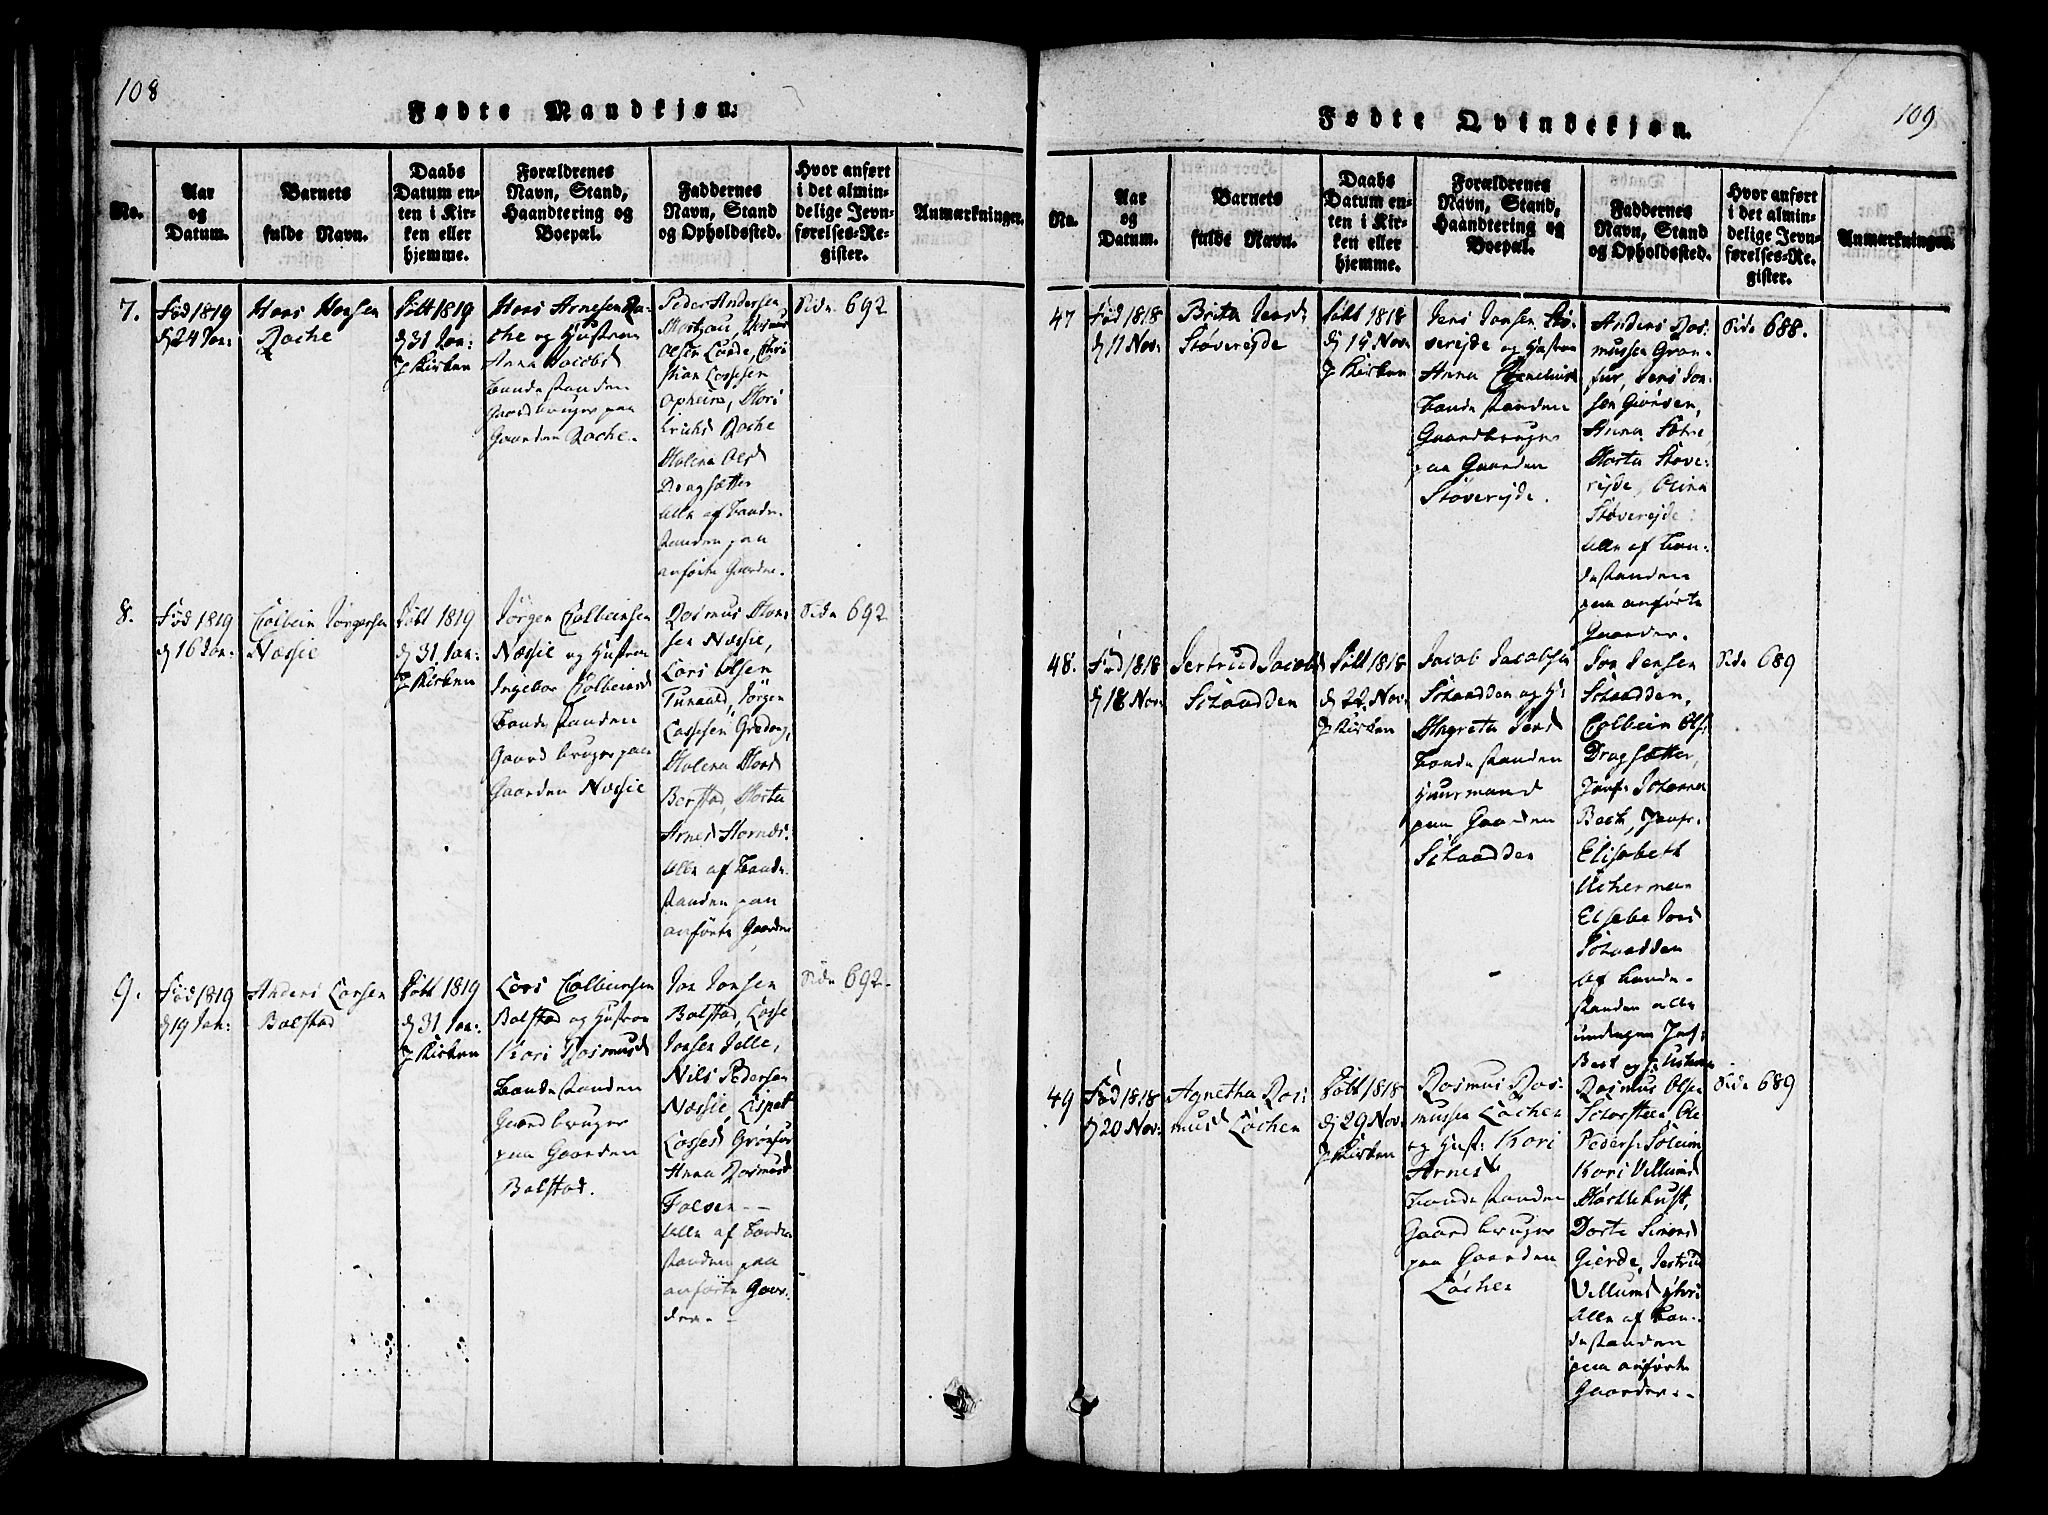 108
Fødte Mandkjøn.
No.
Aar
og
Datum.
Barnets
fulde Navn.
Daabs
Datum en-
ten i Kir-
ken eller
hjemme.
Forældrenes
Navn, Stand,
Haandtering og
Boepæl.
Faddernes
Navn, Stand
og Opholdssted.
Hvor anført
i det almin-
delige Jevn-
førelses-Re-
gister.
Anmærkninger.
7.
Fød 1819
d 24 Jan:
Hans Hansen
Rache
Døbt 1819
d 31 Jan:
J Kirken
Hans Arnesen Ra-
che og Hustroe
Anna Jacobsd
Bondestanden
Gaardbruger paa
Gaarden Rache.
Peder Andersen
Rasmus
Olsen Lunde, Chri
stian Lassesen
Opheim, Mari
Erichsd Rache
Malena Olsd
Dragsætter
Alle af Bonde-
standen paa
anførte Gaarde.
Side 692
8.
Fød 1819
d 16 Jan:
Colbein Jørgensen
Næssie
Døbt 1819
d 31 Jan:
J Kirken
Jørgen Colbeinsen
Næssie og Hustroe
Ingebor Colbeinsd
Bondestanden
Gaardbruger paa
Gaarden Næssie
Rasmus Han-
sen Næssie,
Lars Olsen
Tunold, Jørgen
Lassesen
Malena Monsd
Berstad, Marta
Arnesd Hornæs.
Alle af Bonde-
standen paa
anførte Gaarde
Side 692
9.
Fød 1819
d 19 Jan:
Anders Larsen
Bolstad
Døbt 1819
d 31 Jan:
J Kirken
Lars Colbeinsen
Bolstad og Hustroe
Kari Rasmusd
Bondestanden
Gaardbruger
paa Gaarden
Bolstad.
Jon Jonsen
Bolstad, Lasse
Jonsen Jelle,
Nils Pedersen
Næssie, Lispet
Lassesd Grønfur
Anna Rasmusd
Alle af Bonde
standen paa
anførte Gaar-
der.
Side 692.
109
Fødte Qvindekjøn.
No.
Aar
og
Datum.
Barnets
fulde Navn.
Daabs
Datum en-
ten i Kir-
ken eller
hjemme.
Forældrenes
Navn, Stand,
Haandtering og
Boepæl.
Faddernes
Navn, Stand
og Opholdssted.
Hvor anført
i det almin-
delige Jevn-
førelses-Re-
gister.
Anmærkninger.
47
Fød 1818
d 11 Nov:
Brita Jensd
Støverejde
Døbt 1818
d 19 Nov:
J Kirken
Jens Jonsen Stø-
verejde og Hustroe
Anna Corneliusd
Bondestanden
Gaardbruger
paa Gaarden
Støverejde.
Anders Ras-
mussen Grøn-
fur, Jens Jon-
sen
Anna
Marta Støve-
rejde, Olina
Støverejde.
Alle af Bon-
destanden
paa anførte
Gaarder.
Side 688.
48.
Fød 1818
d 18 Nov:
Jertrud Jacobsd
Schaadden
Døbt 1818
d 22 Nov:
J Kirken
Jacob Jacobsen
Schaadden og H:
Magreta Jensd
Bondestanden
Huusmand
paa Gaarden
Schaadden
Jon Jensen
Schaadden,
Colbein Ols:
Dragsætter,
Jomfr. Johanna
Elisabeth
Elsebe Jonsd
Schaadden
Af Bonde-
standen alle
undtagen Jomf:
Side 689
49
Fød 1818
d 20 Nov:
Agnetha Ras-
musd Løchen
Døbt 1818
d 29 Nov:
J Kirken
Rasmus Ras-
mussen Løchen
og Hust: Kari
Arnesd
Bondestanden
Gaardbruger
paa Gaarden
Løchen
Rasmus Olsen
Schorsteen Ole
Peders: Soleim
Kari Villumsd
Møchlehust,
Dorte Simonsd
Gierde, Jertrud
Villumsd
Alle af Bon-
destanden
paa anførte
Gaarder.
Side 689